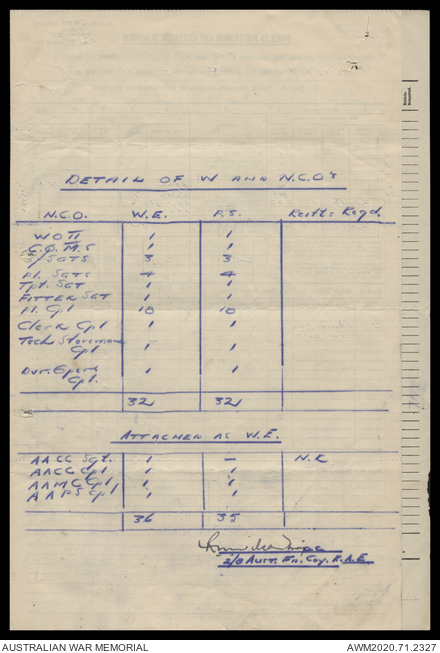 DETAIL OF W AND N.C.O's
N.C.O. W.E. P.S. Reofts Reqd.
WO II 1 1
C.Q.M.S 1 1
S/SGTS 3 3
Pl. SGTS 4 4
Tpt. SGT 1 1
FITTER SGT 1 1
Pl. Cpl 18 18
Clerk Cpl 1 1
Tech Storeman
Cpl 1 1
Cpl. 1 1
32 32
ATTACHED AS W.E.
AACC Sgt. 1 — N.R
AACC Cpl 1 1
AAMC Cpl 1 1
AAPS Cpl 1 1
36 35
2/8 Aust. Fd. Coy. R.A.E
AUSTRALIAN WAR MEMORIAL AWM2020.71.2327